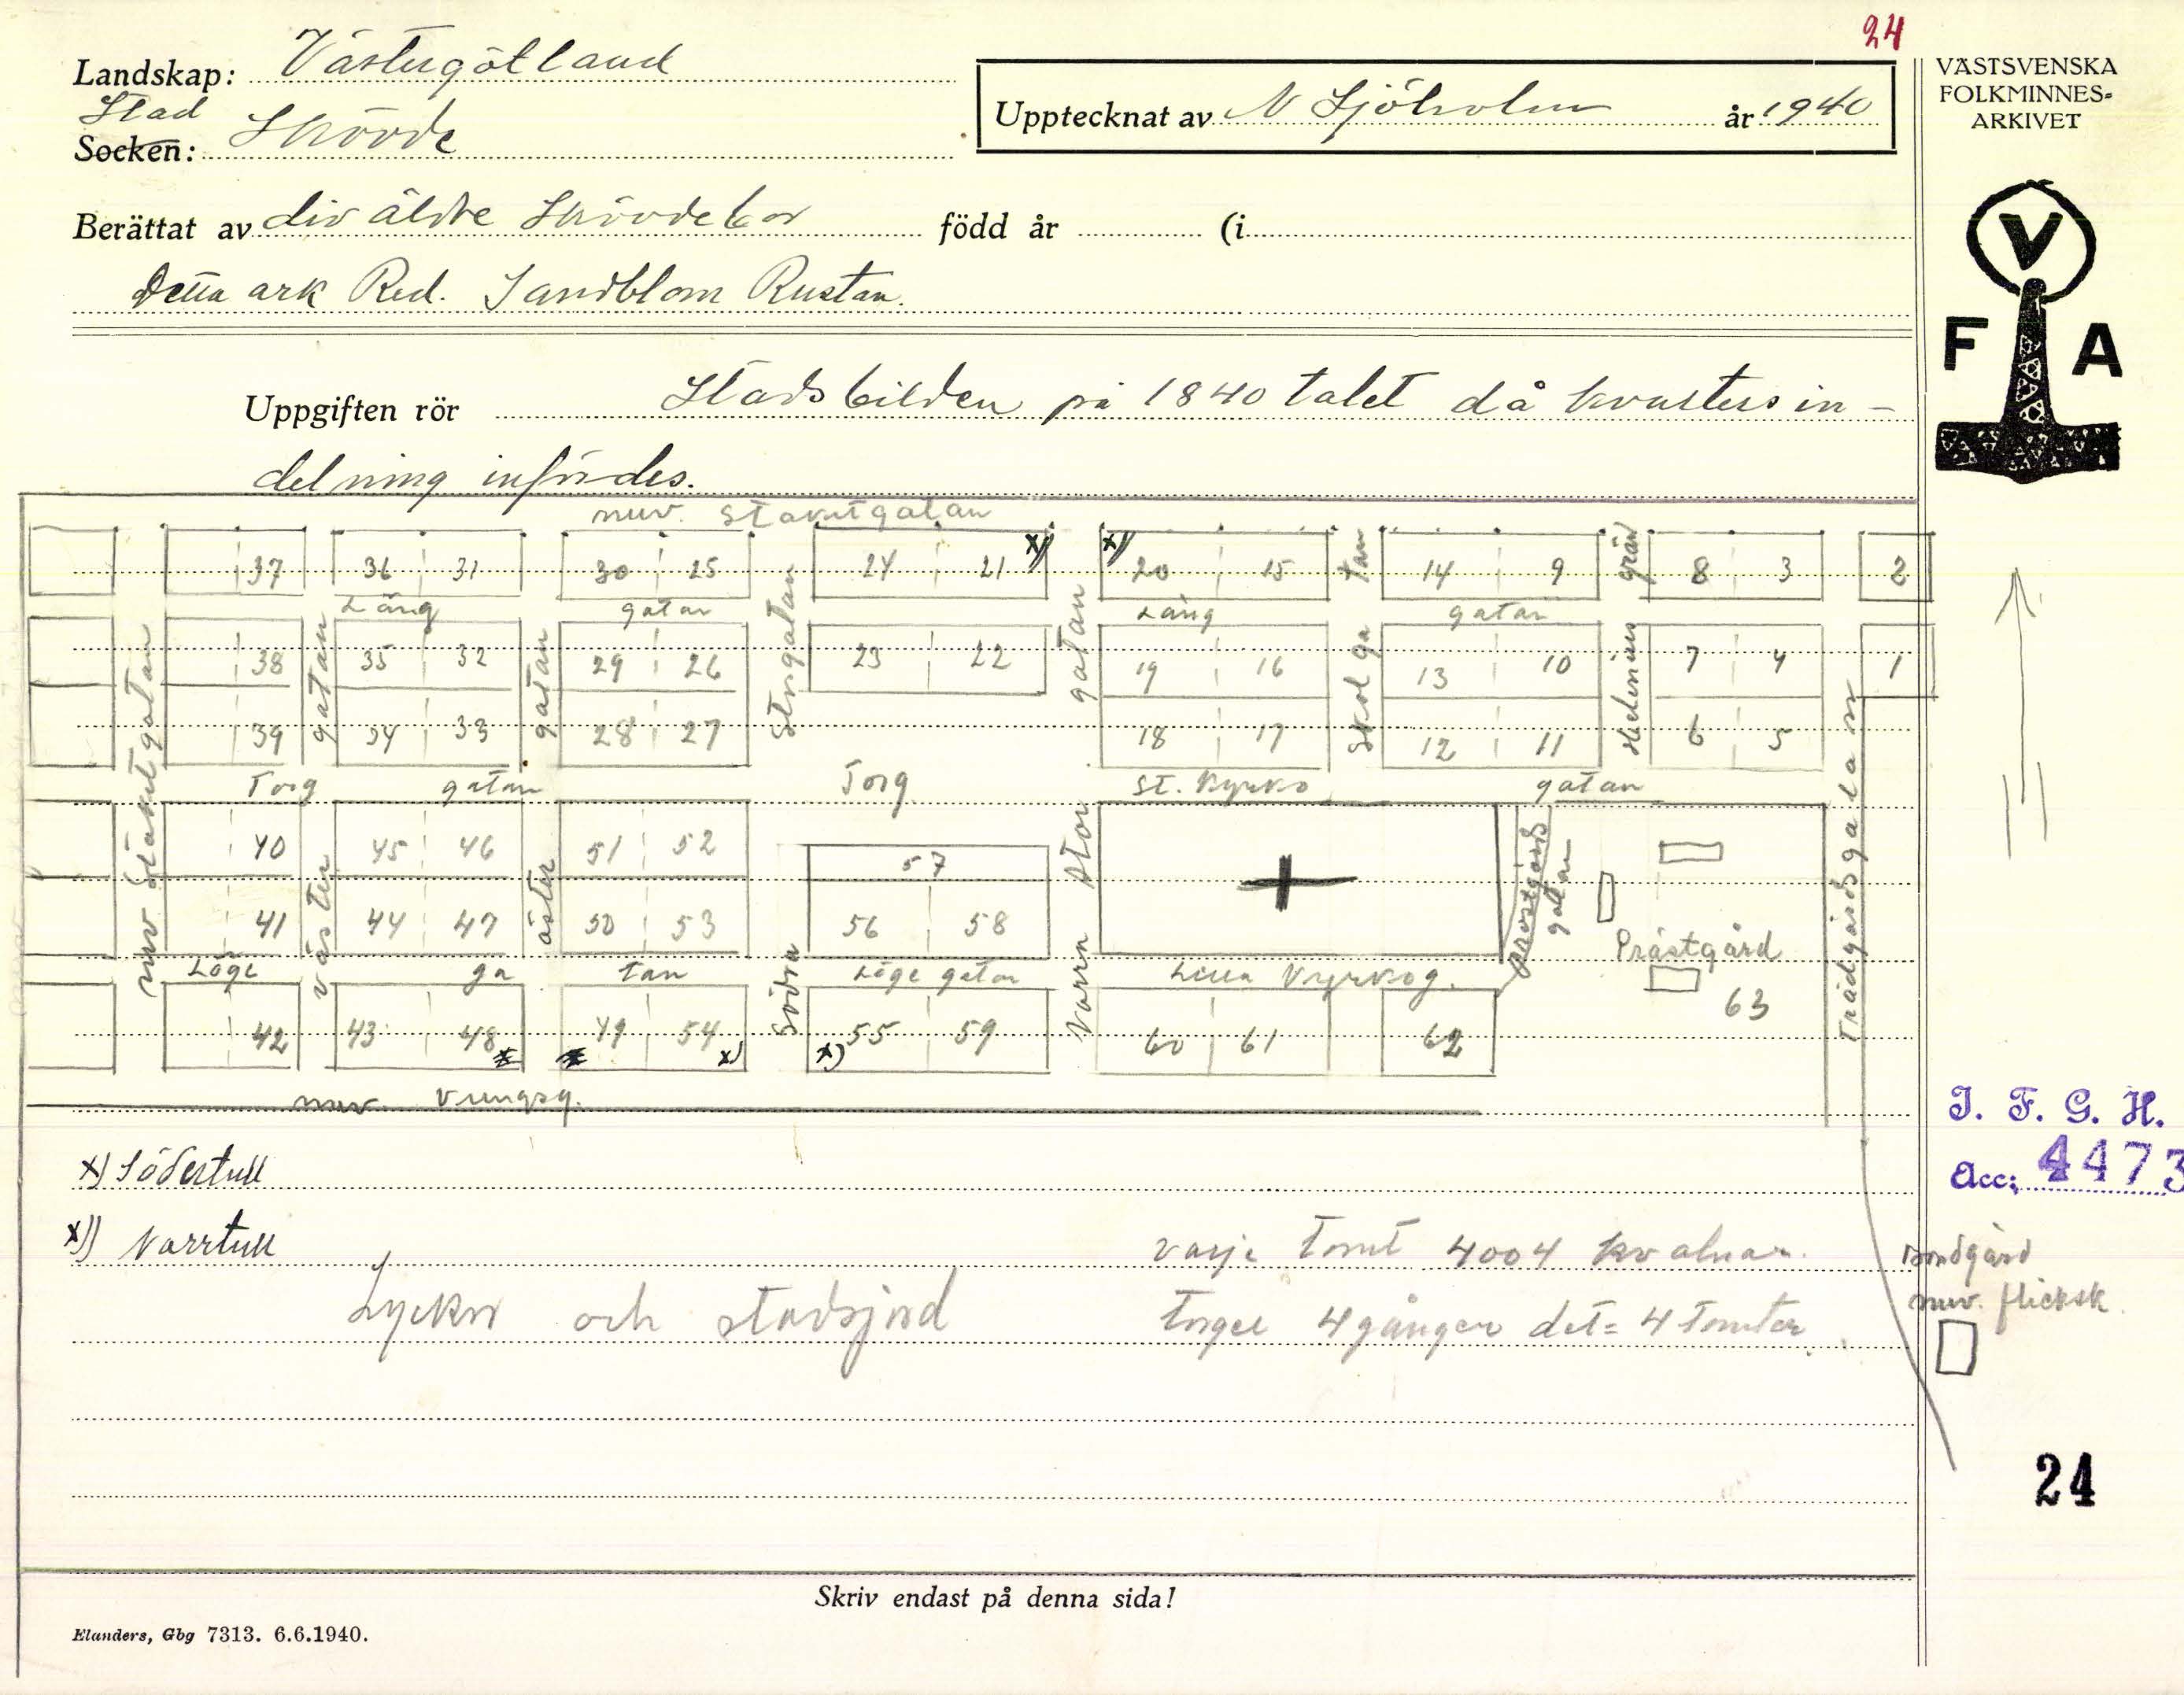 24
Landskap: Västergötland
Stad
Socken: Skövde
Upptecknat av N Sjöholm år 1940
VÄSTSVENSKA
FOLKMINNES-
ARKIVET
V
F A
Berättat av div äldre Skövdebor född år (i
Detta ark Red. Sandblom Rustan.
Uppgiften rör Stadsbilden på 1840 talet då kvartersin-
delning infördes.
nuv. Staketgatan
37 36 31 30 25 24 21 x)) x)) 20 15 14 9 8 3 2
Lång gatan Lång gatan
38 35 32 29 26 23 22 19 16 13 10 7 4 1
39 34 33 28 27 18 17 12 11 6 5
Torg gatan Torg St. Kyrko gatan
40 45 46 51 52 57
41 44 47 50 53 56 58 Prästgård
Löge ga tan Löge gatan Lilla Kyrkog.
42 43 48 49 54 x) x) 55 59 60 61 62 63
nuv Staketgatan
väster gatan
öster gatan
Södra Stngatan
Norra Stor gatan
Skol ga tan
Helenius gränd
Prostgårds gatan
Trädgårdsgatan
nuv. Kungsg.
x) Södertull
x)) Norrtull
varje tomt 4004 kv alnar.
Lyckor och stadsjord
Torget 4 gånger det = 4 tomter.
Bondgård
nuv. flicksk.
I. F. G. H.
Acc: 4473
24
Skriv endast på denna sida!
Elanders, Gbg 7313. 6.6.1940.